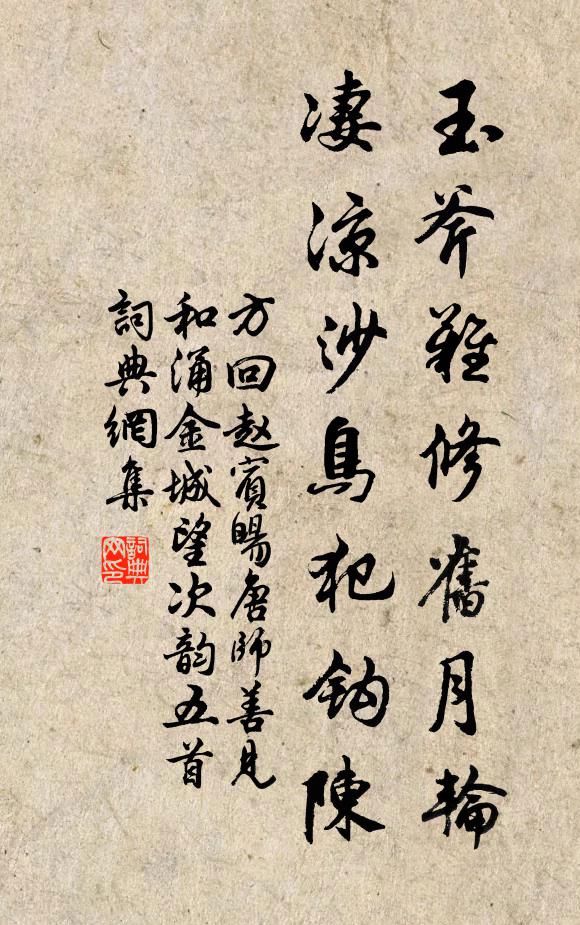 玉斧難修舊月輪
凄涼沙鳥犯鈎陳
方回赵賓暘唐師善見
和涌金城望次韵五首
詞典網集
詞典
网印